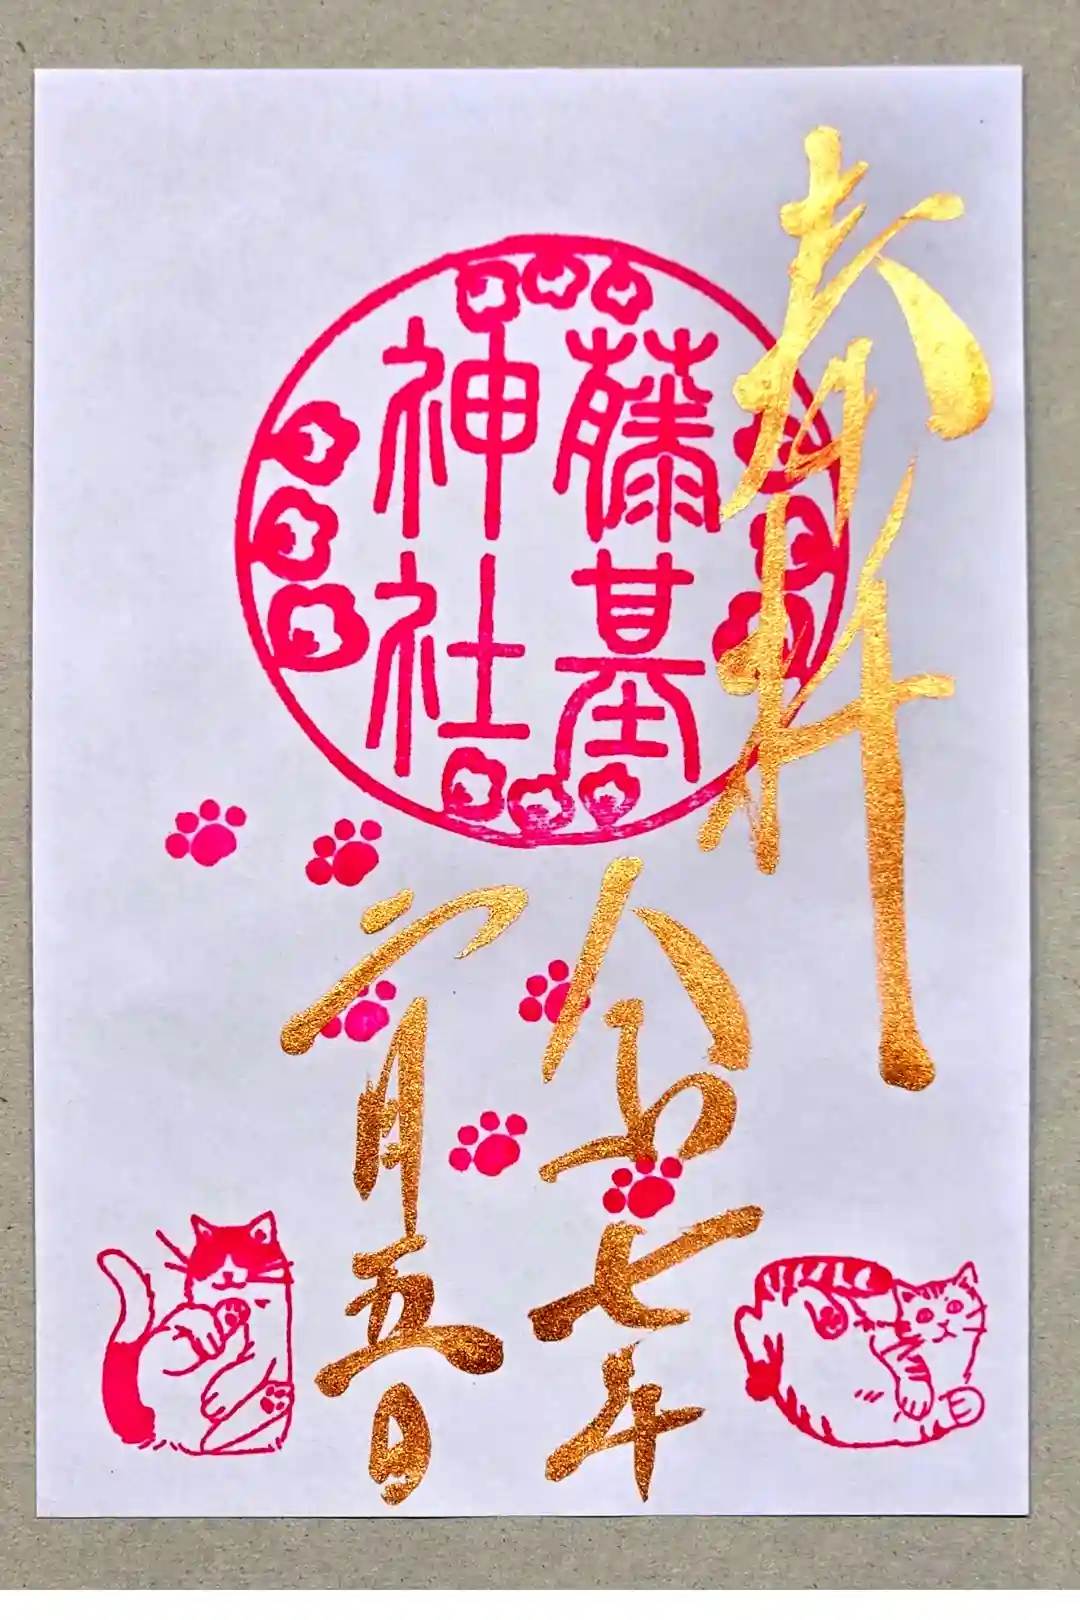 奉拝
藤基
神社
令和七年
六月五日